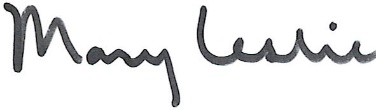 Mary Leslie